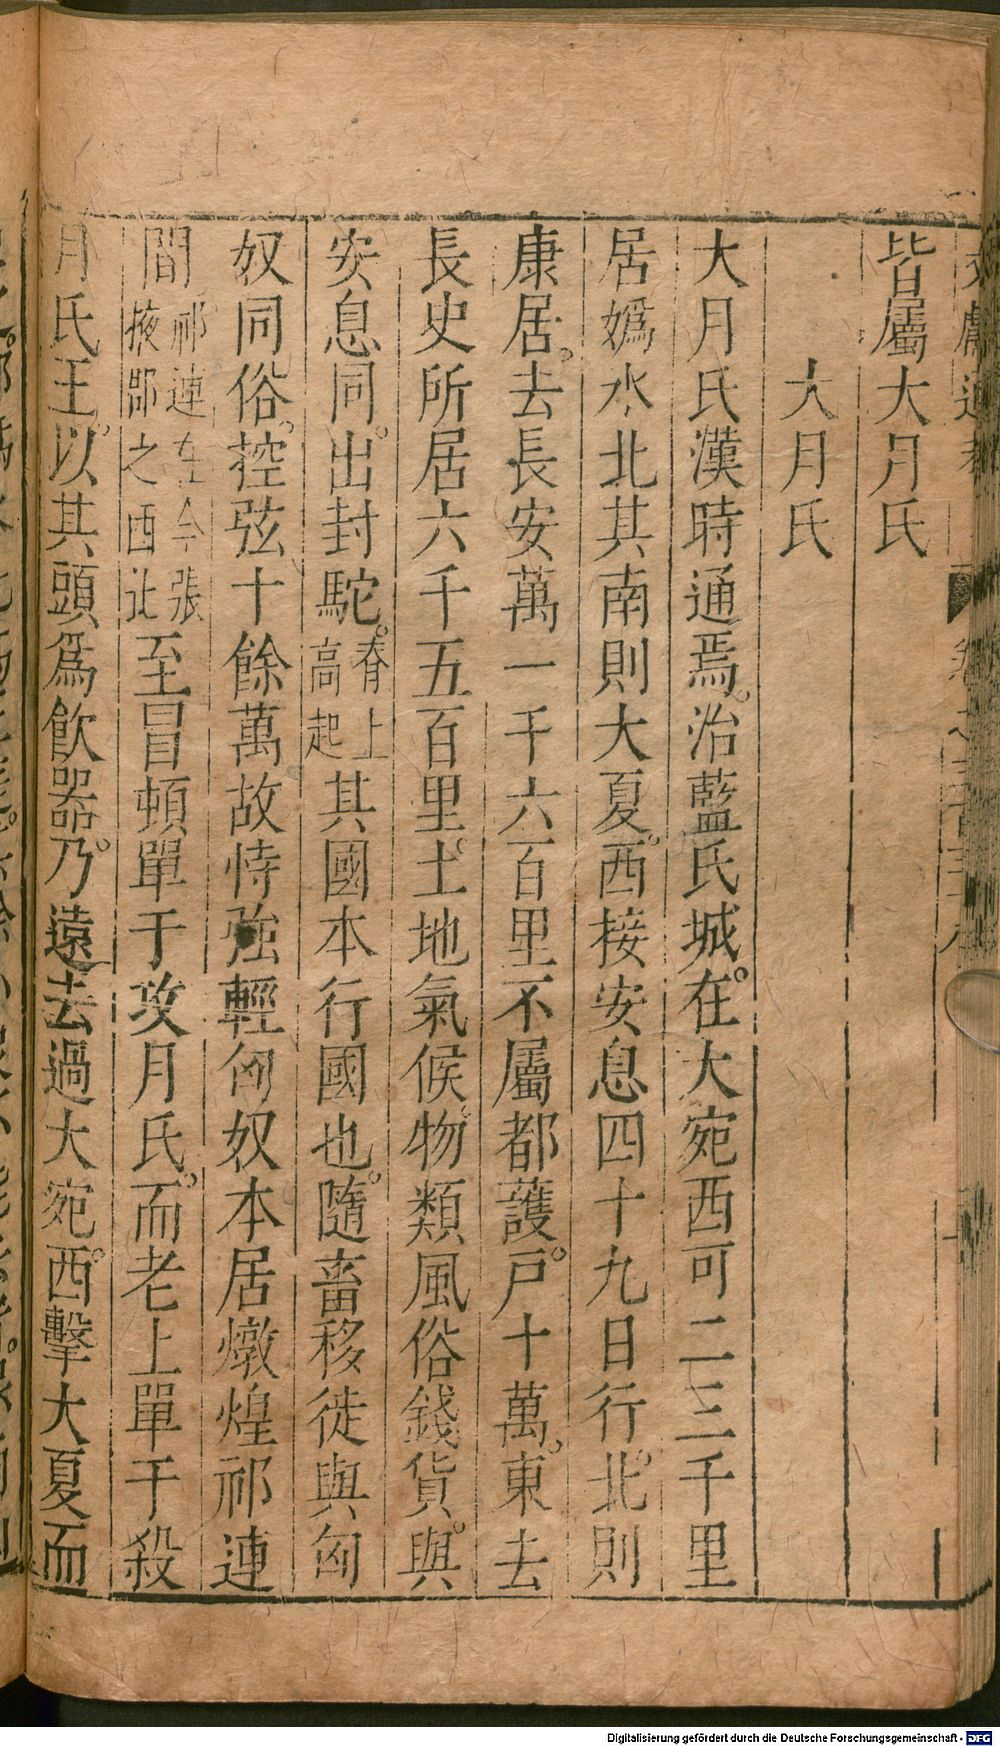 皆屬大月氏
大月氏
大月氏漢時通焉。治藍氏城。在大宛西可二三千里
居嬀水北其南則大夏。西接安息四十九日行。北則
康居。去長安萬一千六百里不屬都護。戶十萬。東去
長史所居六千五百里。土地氣候物類風俗錢貨。與
安息同。出封駝。脊上高起其國本行國也。隨畜移徙與匈
奴同俗。控弦十餘萬故恃強輕匈奴本居燉煌祁連
間祁連在今張掖郡之西北至冒頓單于攻月氏。而老上單于殺
月氏王。以其頭爲飲器。乃遠去過大宛。西擊大夏而
Digitalisierung gefördert durch die Deutsche Forschungsgemeinschaft - DFG